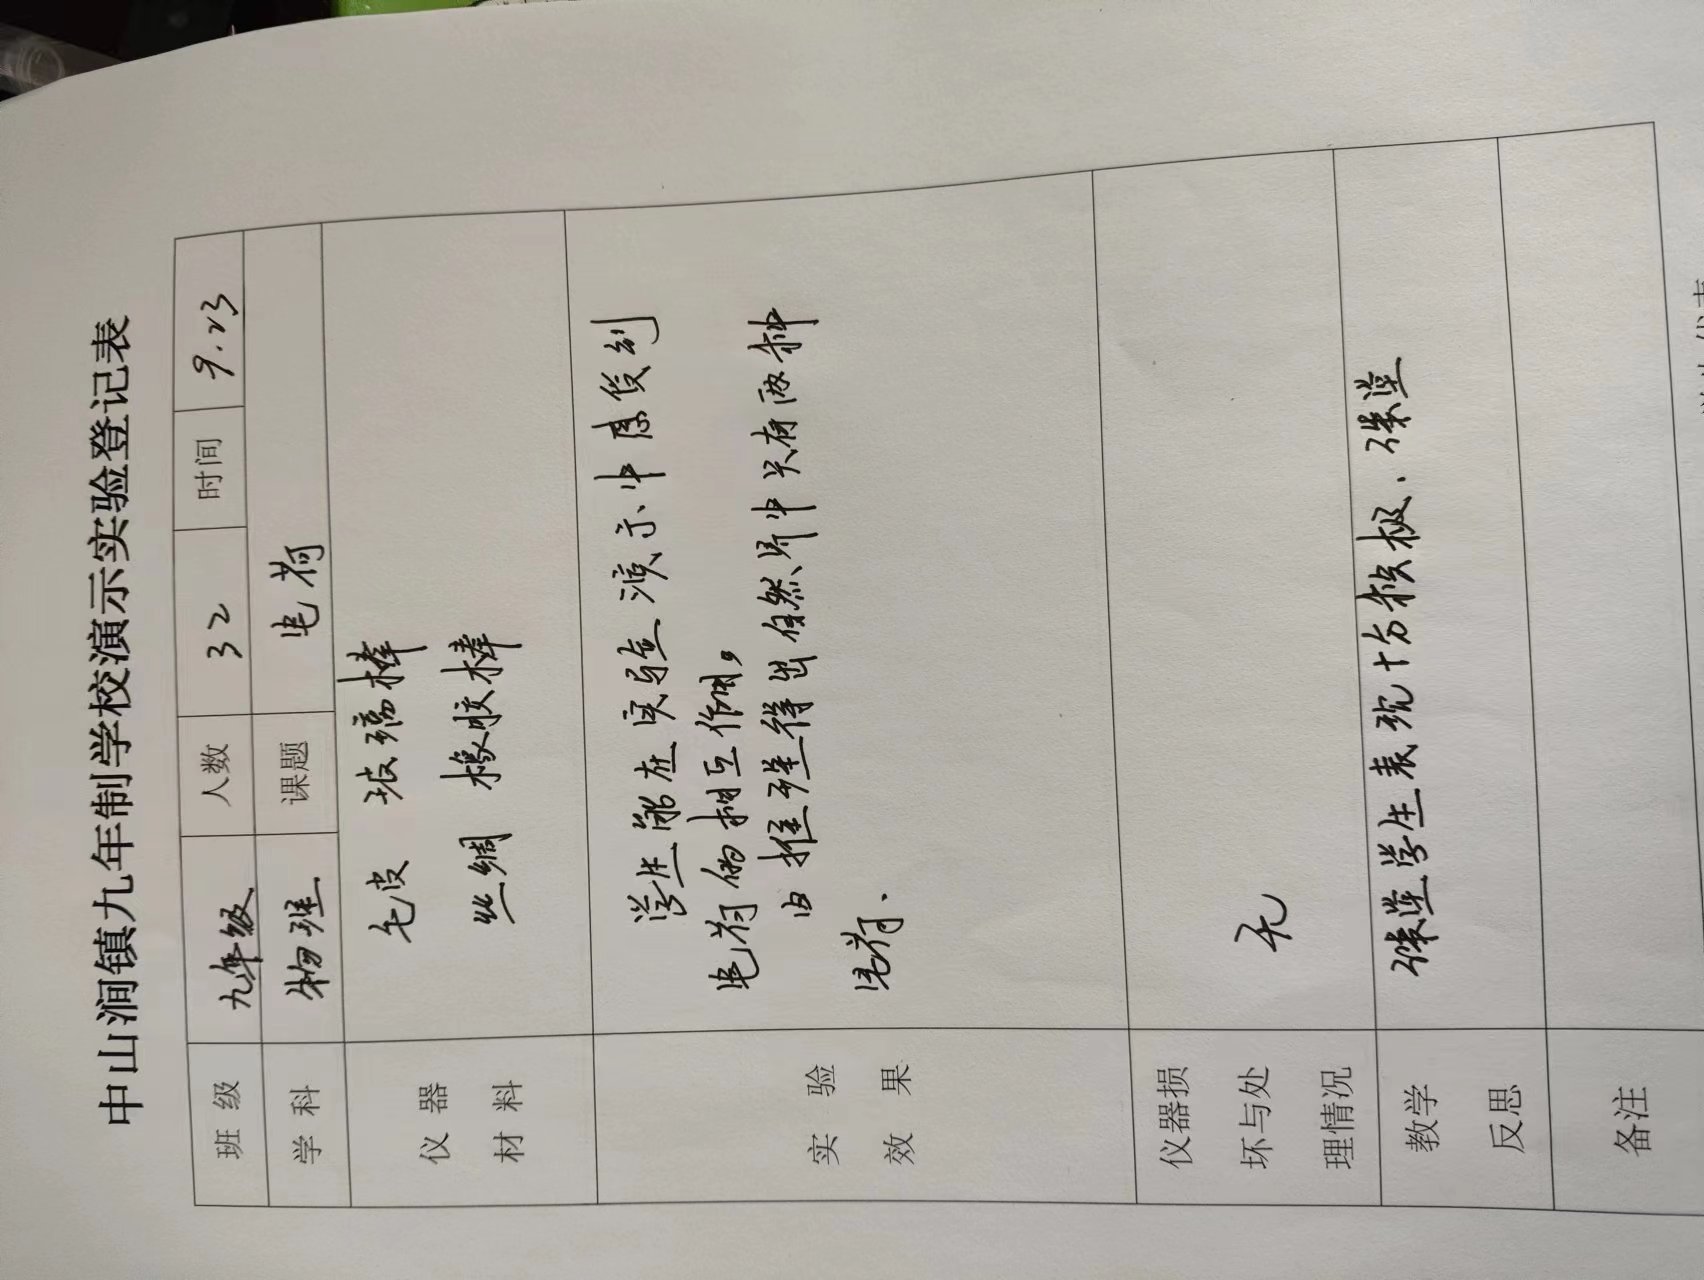 中山涧镇九年制学校演示实验登记表
班级 九年级 人数 32 时间 9.23
学科 物理 课题 电荷
仪器 毛皮 玻璃棒
材料 丝绸 橡胶棒
实验
效果
学生能在实验演示中感受到
电荷的相互作用,
由推理得出自然界中只有两种
电荷.
仪器损
坏与处
理情况
无
教学
反思
学生表现十分积极.
备注